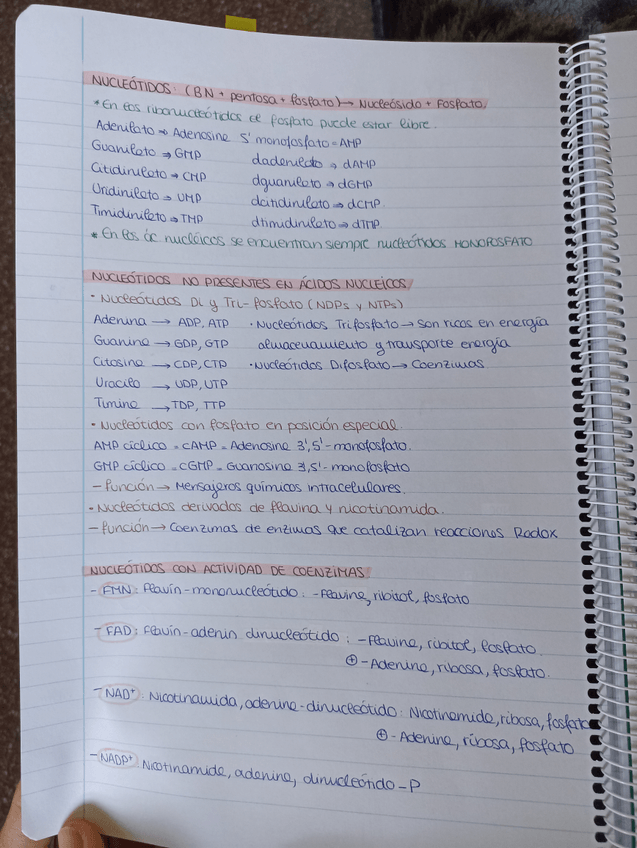 NUCLEÓTIDOS: (BN + pentosa + fosfato) → Nucleósido + Fosfato.
* En los ribonucleótidos el fosfato puede estar libre.
Adenilato ⇒ Adenosine 5' monofosfato = AMP
Guanilato ⇒ GMP dadenilato ⇒ dAMP
Citidinilato → CMP dguanilato ⇒ dGMP
Uridinilato ⇒ UMP dcitidinilato ⇒ dCMP.
Timidinilato ⇒ TMP dtimidinilato ⇒ dTMP.
* En los ác nucléicos se encuentran siempre nucleótidos MONOFOSFATO
NUCLEÓTIDOS NO PRESENTES EN ÁCIDOS NUCLEICOS
· Nucleótidos Di y Tri-fosfato (NDPs y NTPs)
Adenina → ADP, ATP · Nucleótidos Trifosfato → Son ricos en energía
Guanine → GDP, GTP almacenamiento y transporte energía
Citosine → CDP, CTP · Nucleótidos Difosfato → Coenzimas
Uracilo → UDP, UTP
Timine → TDP, TTP
· Nucleótidos con fosfato en posición especial.
AMP cíclico = cAMP = Adenosine 3',5'-monofosfato.
GMP cíclico = cGMP = Guanosine 3',5'-monofosfato
- Función → Mensajeros químicos intracelulares.
· Nucleótidos derivados de flavina y nicotinamida.
- Función → Coenzimas de enzimas que catalizan reacciones Redox
NUCLEÓTIDOS CON ACTIVIDAD DE COENZIMAS
- FMN: Flavín-mononucleótido: - Flavine, ribitol, fosfato
- FAD: Flavín-adenin dinucleótido: - Flavine, ribitol, fosfato.
⊕ - Adenine, ribosa, fosfato.
- NAD⁺: Nicotinamida, adenine-dinucleótido: Nicotinamide, ribosa, fosfato
⊕ - Adenine, ribosa, fosfato
- NADP⁺: Nicotinamide, adenine, dinucleótido-P